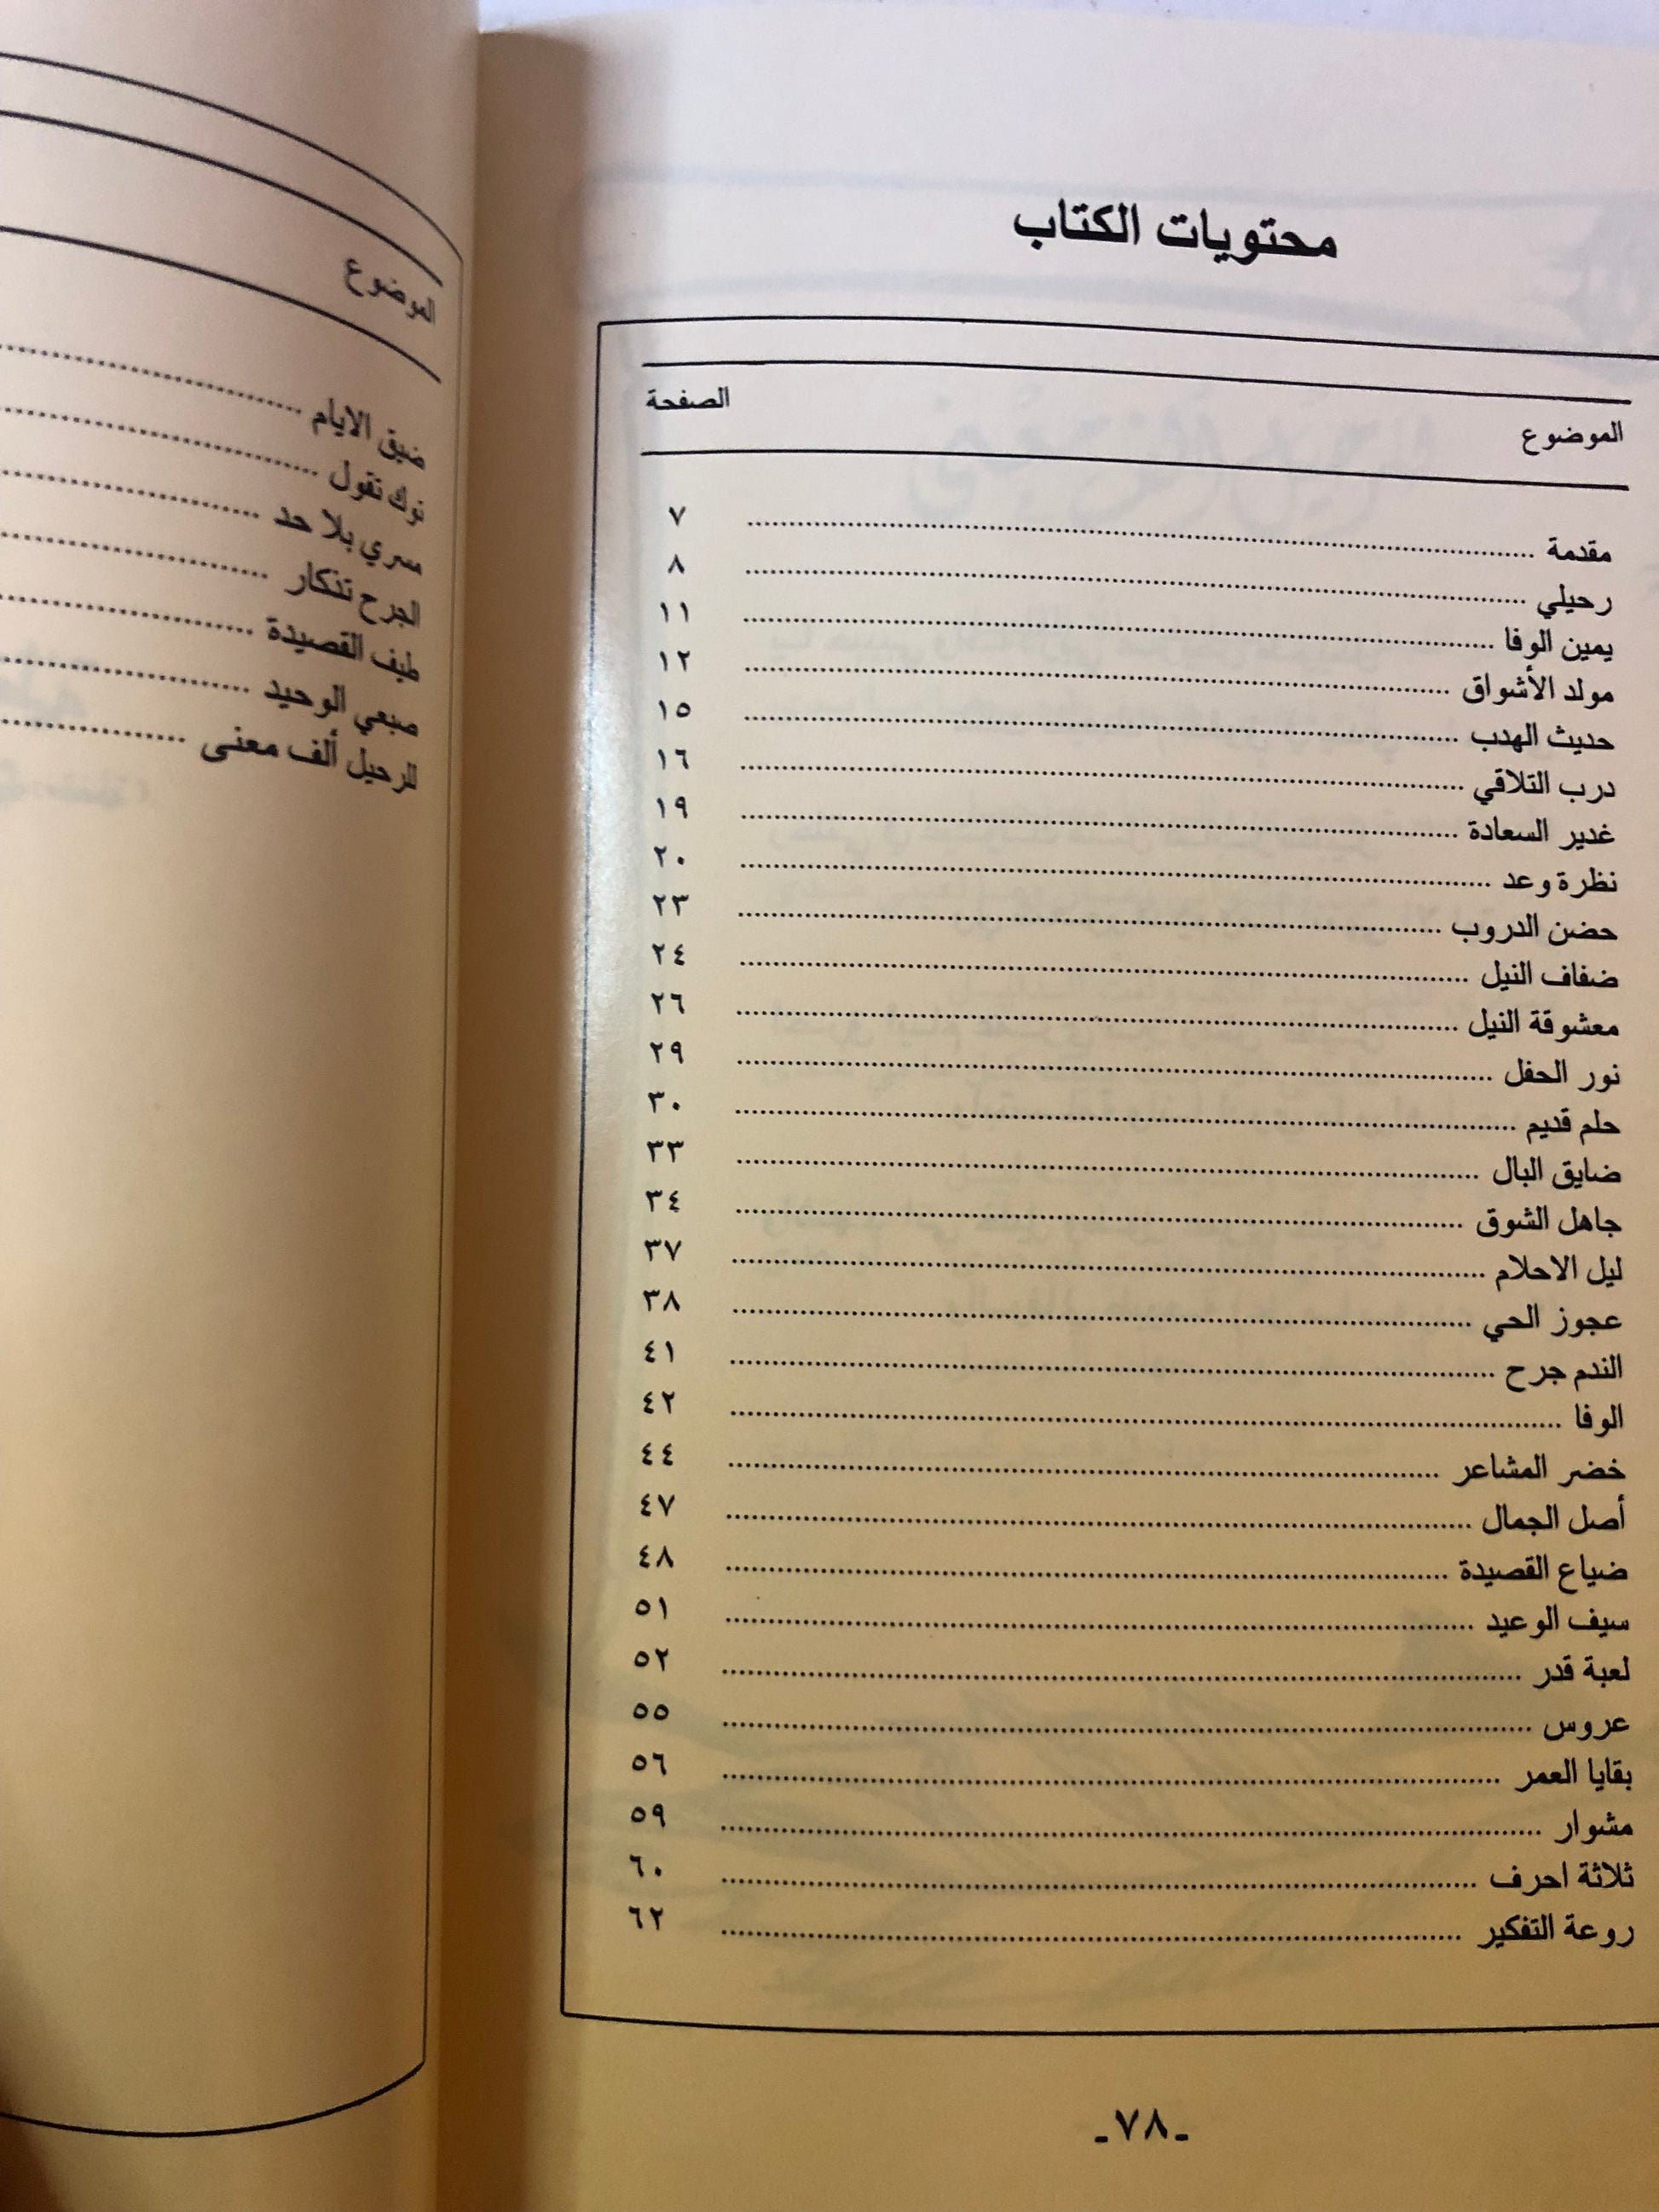 محتويات الكتاب
الموضوع الصفحة
مقدمة ........ ٧
رحيلي ........ ٨
يمين الوفا ........ ١١
مولد الأشواق ........ ١٢
حديث الهدب ........ ١٥
درب التلاقي ........ ١٦
غدير السعادة ........ ١٩
نظرة وعد ........ ٢٠
حضن الدروب ........ ٢٣
ضفاف النيل ........ ٢٤
معشوقة النيل ........ ٢٦
نور الحفل ........ ٢٩
حلم قديم ........ ٣٠
ضايق البال ........ ٣٣
جاهل الشوق ........ ٣٤
ليل الاحلام ........ ٣٧
عجوز الحي ........ ٣٨
الندم جرح ........ ٤١
الوفا ........ ٤٢
خضر المشاعر ........ ٤٤
أصل الجمال ........ ٤٧
ضياع القصيدة ........ ٤٨
سيف الوعيد ........ ٥١
لعبة قدر ........ ٥٢
عروس ........ ٥٥
بقايا العمر ........ ٥٦
مشوار ........ ٥٩
ثلاثة احرف ........ ٦٠
روعة التفكير ........ ٦٢
ـ٧٨ـ
الموضوع
ضيق الايام ........
توك تقول ........
بلا حد ........
الجرح تذكار ........
طيف القصيدة ........
الوحيد ........
للرحيل ألف معنى ........